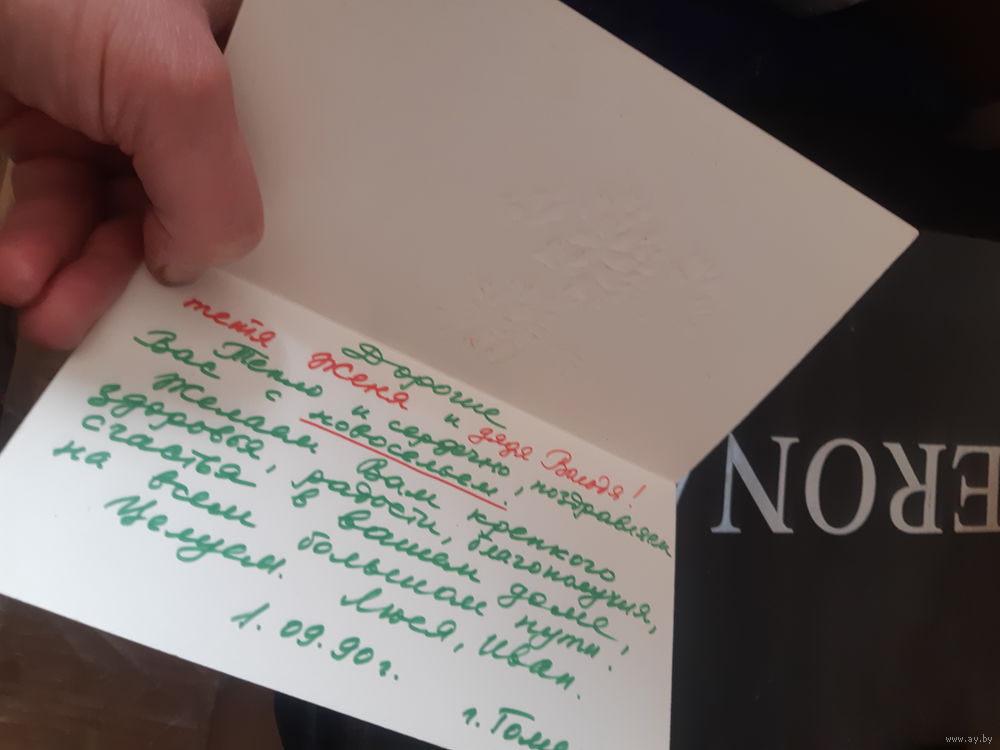 Дорогие
тетя Женя и дядя Володя!
Тепло и сердечно поздравляем
Вас с новосельем.
Желаем Вам крепкого
здоровья, радости, благополучия,
счастья в вашем доме
на всем большом пути!
Целуем. Люся, Иван.
1. 09. 90 г.
г. Гоме
ERON
www.ay.by